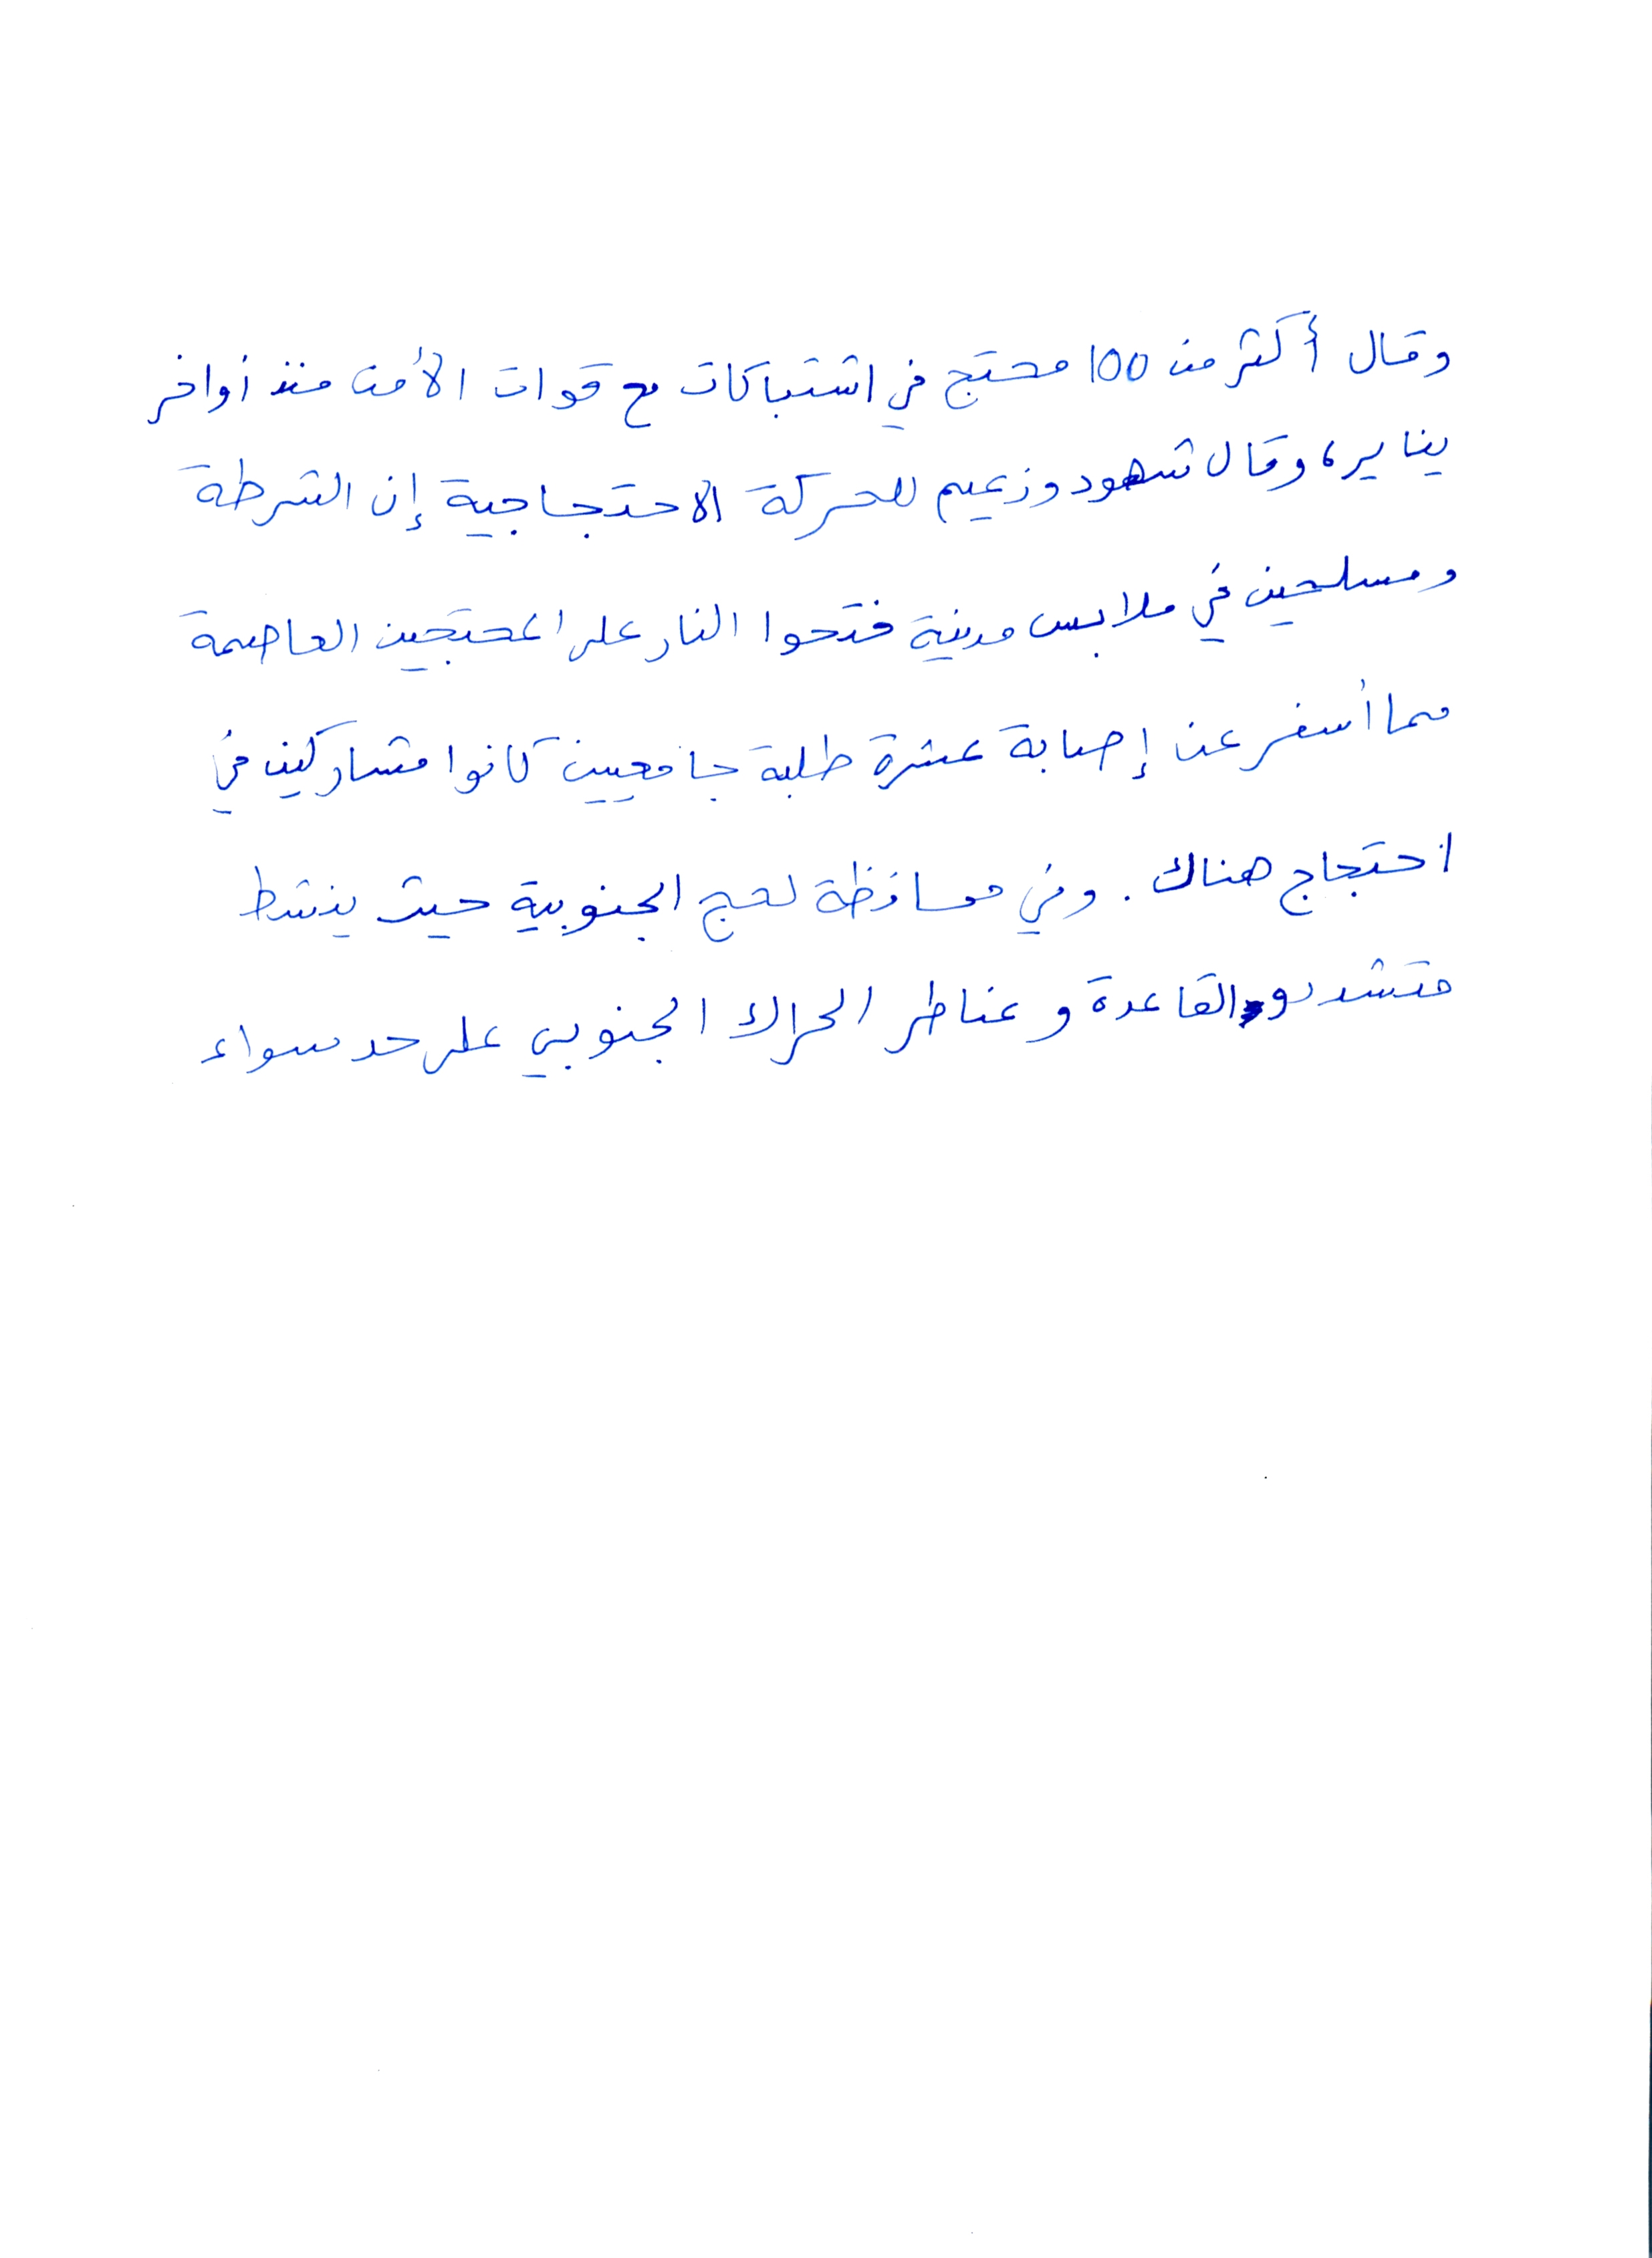 وقال أكثر من 100 محتج في اشتباكات مع قوات الأمن منذ أواخر
يناير، وقال شهود وزعيم للحركة الاحتجاجية إن الشرطة
ومسلحين في ملابس مدنية فتحوا النار على المحتجين العاصمة
مما أسفر عن إصابة عشرة طلبة جامعيين كانوا مشاركين في
احتجاج هناك. وفي محافظة لحج الجنوبية حيث ينشط
متشددو القاعدة وعناطر الحراك الجنوبي على حد سواء